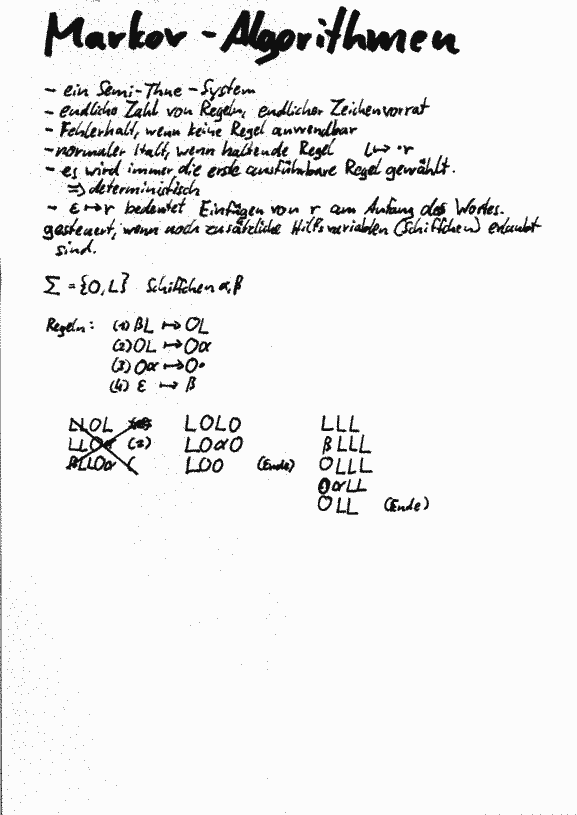 Markov - Algorithmen
- ein Semi-Thue-System
- endliche Zahl von Regeln, endlicher Zeichenvorrat
- Fehlerhalt, wenn keine Regel anwendbar
- normaler Halt, wenn haltende Regel l ↦ ·r
- es wird immer die erste ausführbare Regel gewählt.
⇒ deterministisch
- ε ↦ r bedeutet Einfügen von r am Anfang des Wortes.
gesteuert, wenn noch zusätzliche Hilfsvariablen (Schiffchen) erlaubt
sind.
Σ = {O, L} Schiffchen α, β
Regeln: (1) βL ↦ OL
(2) OL ↦ Oα
(3) Oα ↦ O•
(4) ε ↦ β
LOL LOLO LLL
LLOα (2) LOαO βLLL
βLLOα ( LOO (Ende) OLLL
OαLL
OLL (Ende)